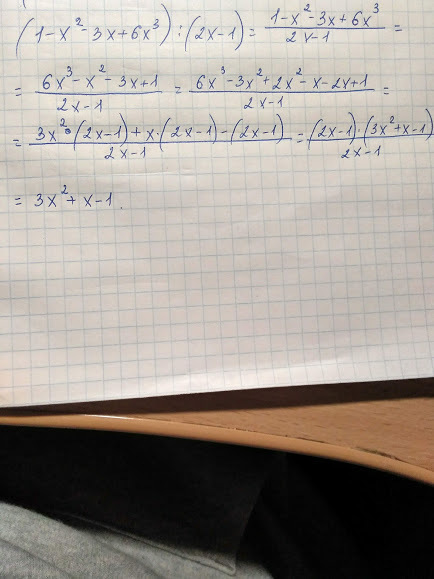 (1-x²-3x+6x³):(2x-1) = (1-x²-3x+6x³)/(2x-1) =
= (6x³-x²-3x+1)/(2x-1) = (6x³-3x²+2x²-x-2x+1)/(2x-1) =
= (3x²·(2x-1)+x·(2x-1)-(2x-1))/(2x-1) = ((2x-1)·(3x²+x-1))/(2x-1)
= 3x²+x-1.